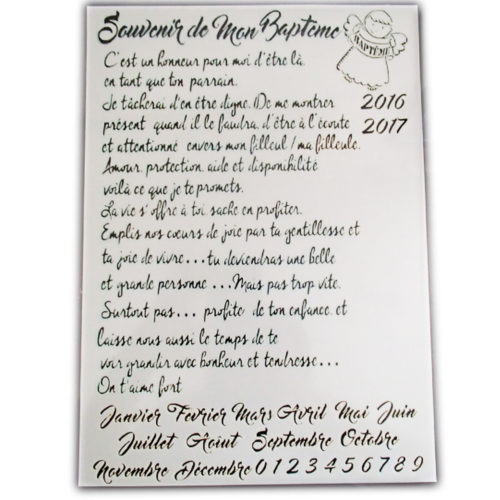 Souvenir de Mon Baptême
BAPTÊME
C'est un honneur pour moi d'être là
en tant que ton parrain.
Je tâcherai d'en être digne. De me montrer
2016
présent quand il le faudra, d'être à l'écoute
2017
et attentionné envers mon filleul / ma filleule.
Amour, protection, aide et disponibilité
voilà ce que je te promets.
La vie s'offre à toi, sache en profiter.
Emplis nos cœurs de joie par ta gentillesse et
ta joie de vivre...tu deviendras une belle
et grande personne ...Mais pas trop vite.
Surtout pas... profite de ton enfance, et
laisse nous aussi le temps de te
voir grandir avec bonheur et tendresse...
On t'aime fort
Janvier Fevrier Mars Avril Mai Juin
Juillet Août Septembre Octobre
Novembre Décembre 0 1 2 3 4 5 6 7 8 9